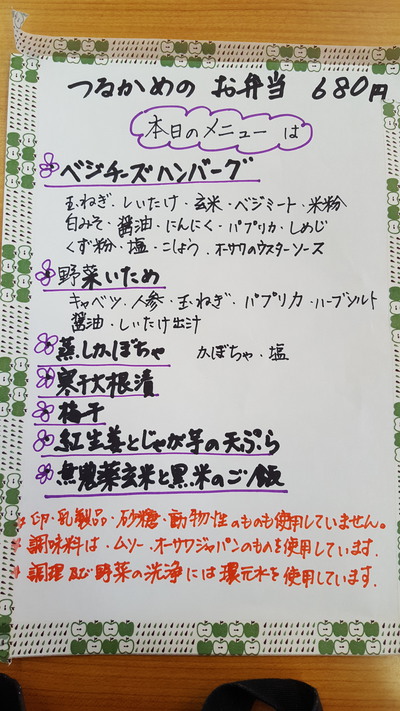 つるかめの お弁当 680円
本日のメニューは
ベジチーズハンバーグ
玉ねぎ・しいたけ・玄米・ベジミート・米粉
白みそ・醤油・にんにく・パプリカ・しめじ
くず粉・塩・こしょう・オーサワのウスターソース
野菜いため
キャベツ・人参・玉ねぎ・パプリカ・ハーブソルト
醤油・しいたけ出汁
蒸しかぼちゃ かぼちゃ・塩
寒干大根漬
梅干
紅生姜とじゃが芋の天ぷら
無農薬玄米と黒米のご飯
卵・乳製品・砂糖・動物性のものも使用していません。
調味料は・ムソー・オーサワジャパンのものを使用しています.
調理及び野菜の洗浄には還元水を使用しています.